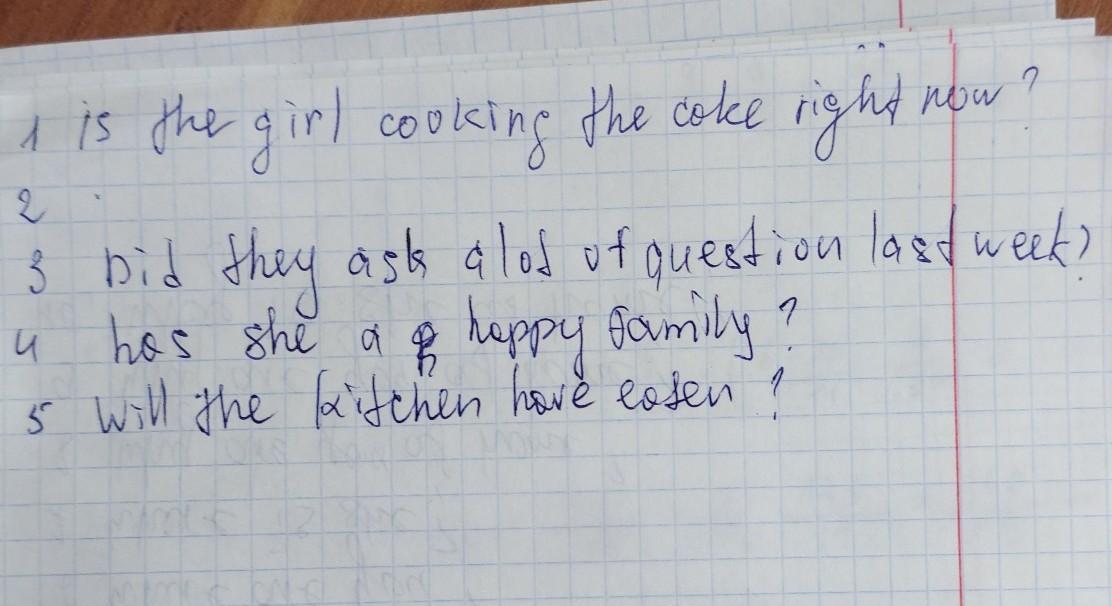 1 is the girl cooking the coke right now?
2
3 Did they ask a lot of question last week?
4 has she a happy family?
5 Will the kitchen have eaten?